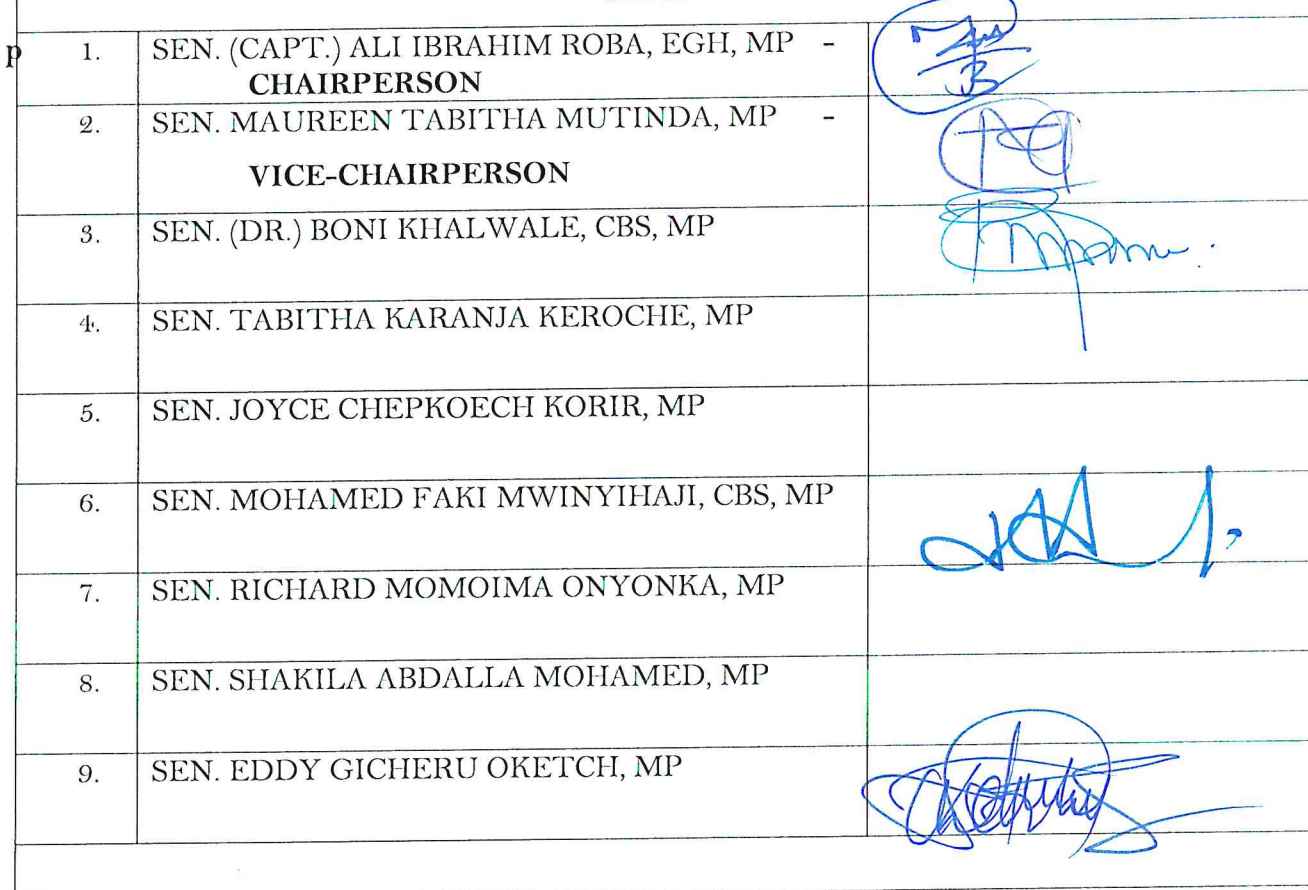 p 1. SEN. (CAPT.) ALI IBRAHIM ROBA, EGH, MP -
CHAIRPERSON
2. SEN. MAUREEN TABITHA MUTINDA, MP -
VICE-CHAIRPERSON
3. SEN. (DR.) BONI KHALWALE, CBS, MP
4. SEN. TABITHA KARANJA KEROCHE, MP
5. SEN. JOYCE CHEPKOECH KORIR, MP
6. SEN. MOHAMED FAKI MWINYIHAJI, CBS, MP
7. SEN. RICHARD MOMOIMA ONYONKA, MP
8. SEN. SHAKILA ABDALLA MOHAMED, MP
9. SEN. EDDY GICHERU OKETCH, MP